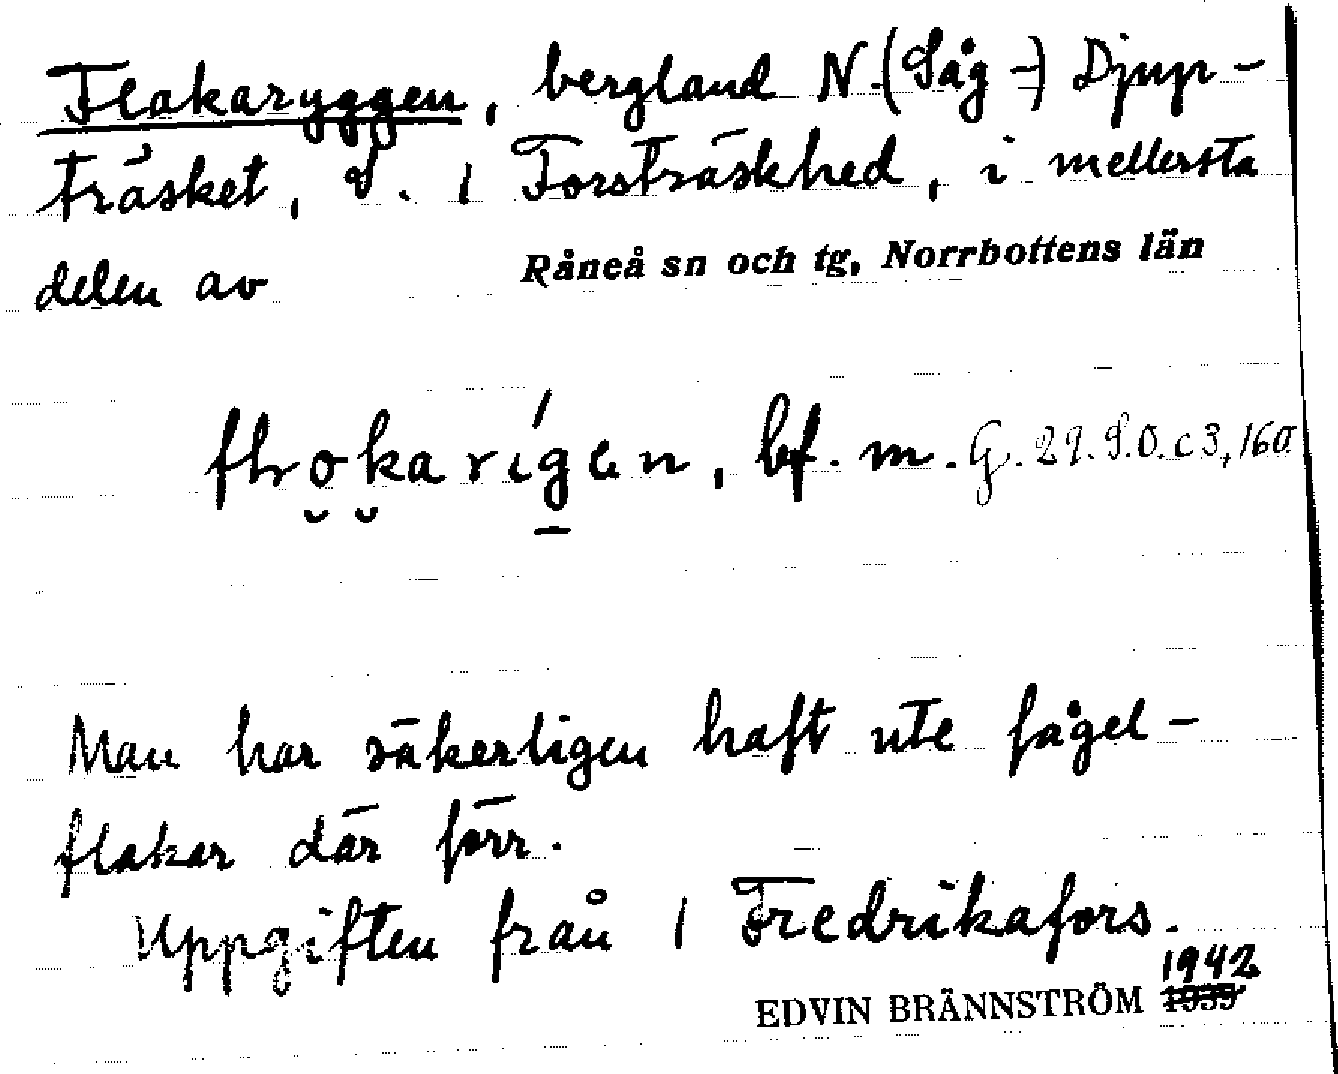 Flakaryggen, bergland N. (Såg-) Djup-
träsket, S. 1 Forsträskhed, i mellersta
delen av Råneå sn och tg, Norrbottens län
bf. m. G. 29. S.O. c 3, 160
Man har säkerligen haft ute fågel-
flakar där förr.
Uppgiften från 1 Fredrikafors.
1942
EDVIN BRÄNNSTRÖM 1939